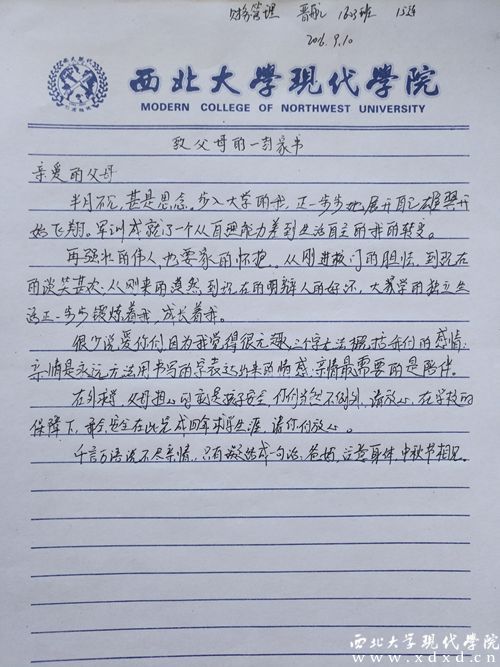 财务管理 1623班
2016.9.10
西北大学現代学院
MODERN COLLEGE OF NORTHWEST UNIVERSITY
致父母的一封家书
亲爱的父母
半月不见,甚是思念。步入大学的我,正一步步地展开自己雄翼开
始飞翔。军训成就了一个从自理能力差到生活自主的我的转变。
再强壮的伟人,也要家的怀抱。从刚进校门的胆怯,到现在
的谈笑甚欢,从刚来的茫然到现在的明辩人的好坏,大学的独立生
活正一步步锻炼着我,成长着我。
很少说爱你们因为我觉得很无趣,三个字无法概括我们的感情;
亲情是永远无法用书写的字表达出来的情感;亲情最需要的是陪伴。
在外求学,父母担心的就是孩子安全 你们当然不例外,请放心,在学校的
保障下,安全在此完成四年求学生涯,请你们放心。
千言万语说不尽亲情,只有凝结成一句话:爸妈,注意身体,中秋节相见。
西北大学现代学院
www.xdxd.cn